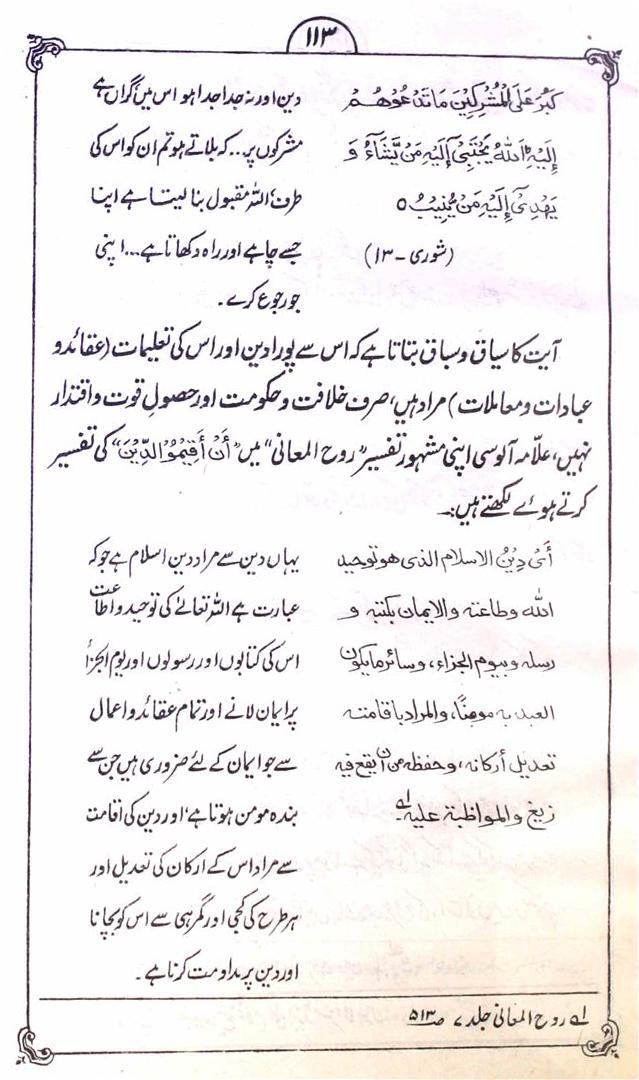 ۱۱۳
كَبُرَ عَلَى الْمُشْرِكِيْنَ مَا تَدْعُوْهُمْ
اِلَيْهِ اَللّٰهُ يَجْتَبِىْٓ اِلَيْهِ مَنْ يَّشَآءُ وَ
يَهْدِىْٓ اِلَيْهِ مَنْ يُّنِيْبُ ٥
(شوری - ۱۳)
دین اور نہ جدا جدا ہو اس میں گراں ہے
مشرکوں پر... کہ بلاتے ہو تم ان کو اس کی
طرف اللہ مقبول بنا لیتا ہے اپنا
جسے چاہے اور راہ دکھاتا ہے... اپنی
جو رجوع کرے۔
آیت کا سیاق و سباق بتاتا ہے کہ اس سے پورا دین اور اس کی تعلیمات (عقائد و
عبادات و معاملات) مراد ہیں، صرف خلافت و حکومت اور حصولِ قوت و اقتدار
نہیں، علّامہ آلوسی اپنی مشہور تفسیر ”روح المعانی“ میں ”أَنْ أَقِيمُوا الدِّيْنَ“ کی تفسیر
کرتے ہوئے لکھتے ہیں:۔
أَىْ دِيْنُ الاسلام الذى هو توحيد
الله وطاعته والايمان بكتبه و
رسله وبيوم الجزاء، وسائر مايكون
العبد به مومنًا، والمراد باقامته
تعديل أركانه، وحفظه من أن يقع فيه
زيغ والمواظبة عليه لے
یہاں دین سے مراد دین اسلام ہے جو کہ
عبارت ہے اللہ تعالےٰ کی توحید و اطاعت
اس کی کتابوں اور رسولوں اور یوم الجزاء
پر ایمان لانے اور تمام عقائد و اعمال
سے جو ایمان کے لئے ضروری ہیں جن سے
بندہ مومن ہوتا ہے، اور دین کی اقامت
سے مراد اس کے ارکان کی تعدیل اور
ہر طرح کی کجی اور گمرہی سے اس کو بچانا
اور دین پر مداومت کرنا ہے۔
لے روح المعانی جلد ۷ صـ ۵۱۳